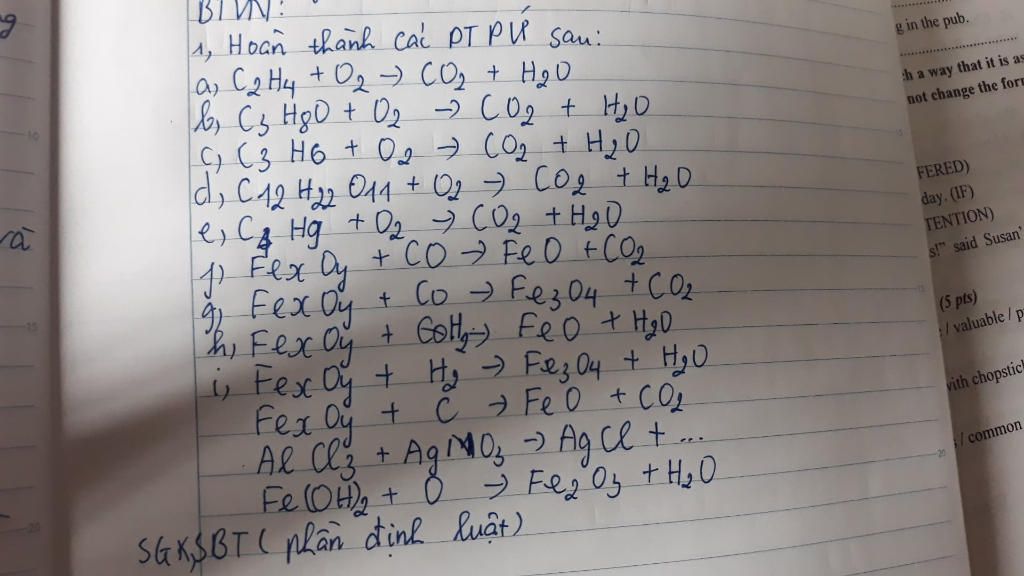 BTVN:
1, Hoàn thành các PTPƯ sau:
a, C2H4 + O2 → CO2 + H2O
b, C3H8O + O2 → CO2 + H2O
c, C3H6 + O2 → CO2 + H2O
d, C12H22O11 + O2 → CO2 + H2O
e, C4H9 + O2 → CO2 + H2O
f) FexOy + CO → FeO + CO2
g, FexOy + CO → Fe3O4 + CO2
h, FexOy + H2 → FeO + H2O
i, FexOy + H2 → Fe3O4 + H2O
FexOy + C → FeO + CO2
AlCl3 + AgNO3 → AgCl + ...
Fe(OH)2 + O → Fe2O3 + H2O
SGK, SBT (phần định luật)
g in the pub.
h a way that it is as
not change the for
FERED)
day. (IF)
TENTION)
s!" said Susan'
(5 pts)
/ valuable / p
with chopstic
/ common